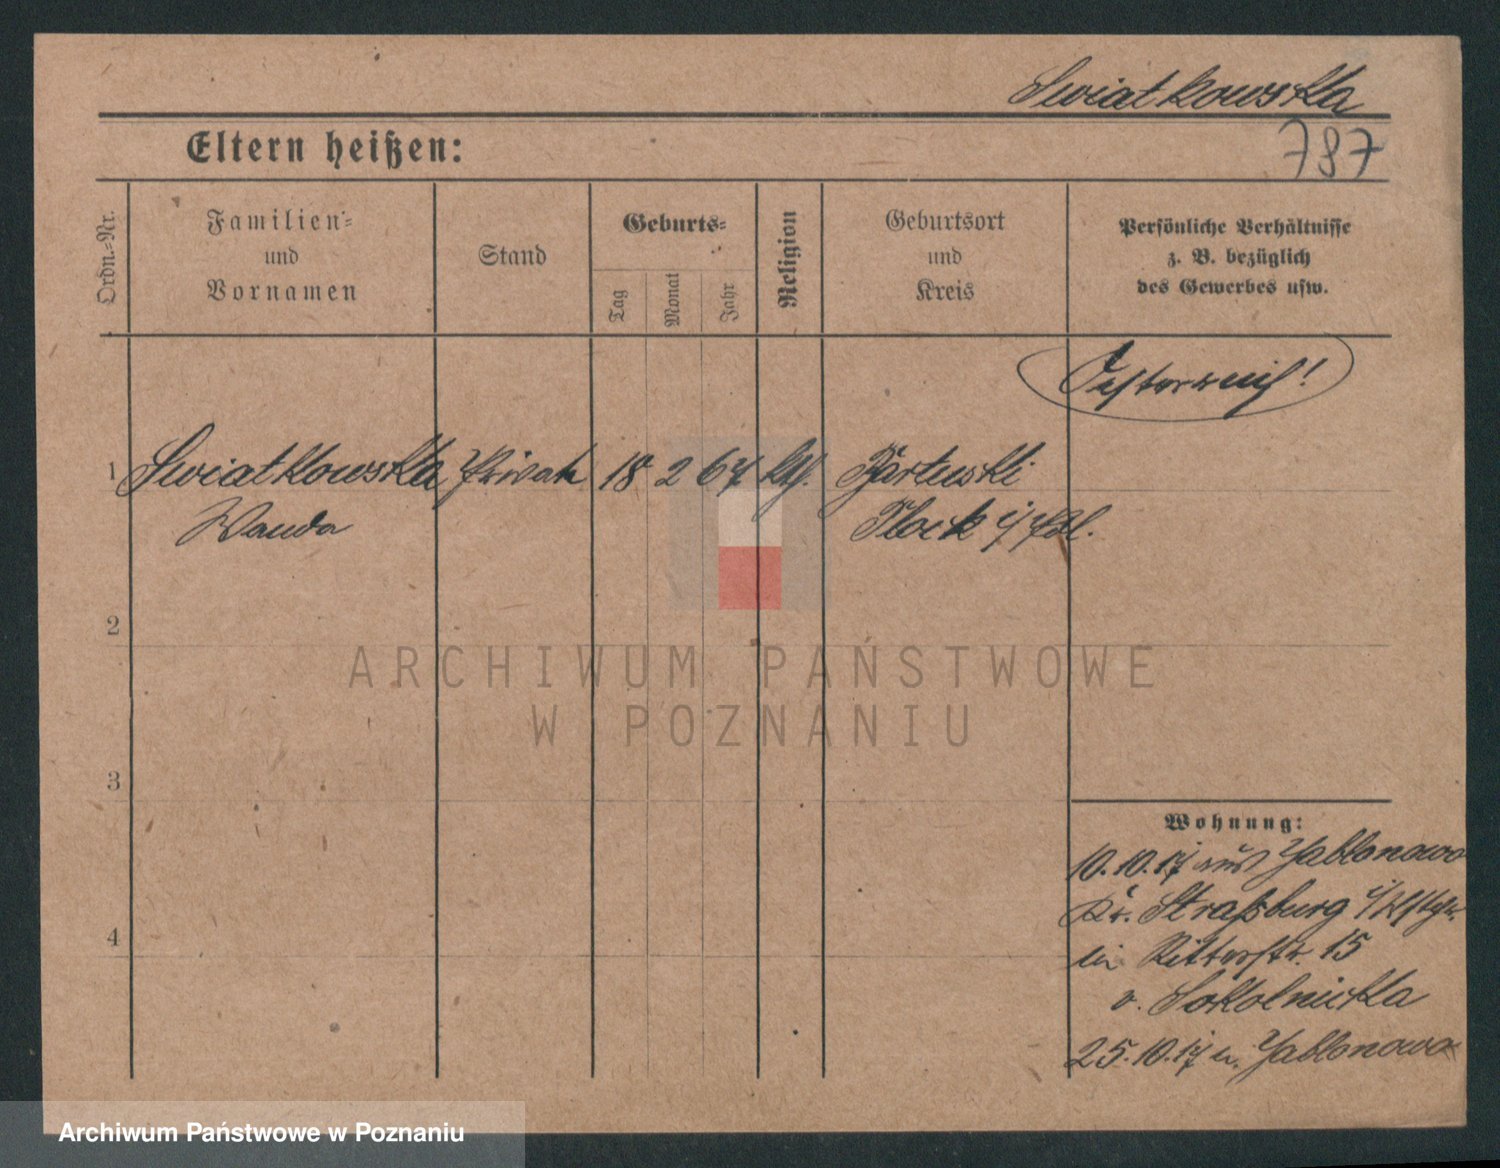 Swiatkowska
787
Eltern heißen:
Ordn.-Nr.
Familien-
und
Vornamen
Stand
Geburts-
Tag
Monat
Jahr
Religion
Geburtsort
und
Kreis
Persönliche Verhältnisse
z. B. bezüglich
des Gewerbes usw.
Oesterreich!
1 Swiatkowska Private 18 2 67 kth.
Wanda Plock i/Pol.
2
3
4
Wohnung:
10.10.17 aus Jablonowo
Kr. Straßburg i/Wstpr.
bei Ritterstr. 15
v. Sokolnicka
25.10.17 n. Jablonowo
ARCHIWUM PAŃSTWOWE
W POZNANIU
Archiwum Państwowe w Poznaniu